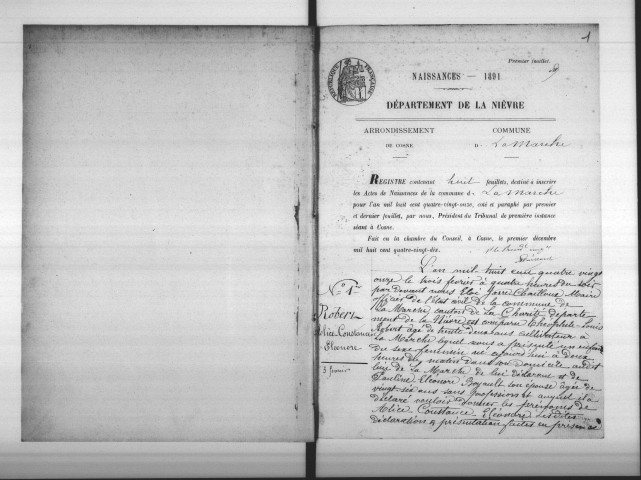 1
Premier feuillet.
RÉPUBLIQUE FRANÇAISE
NAISSANCES — 1891
DÉPARTEMENT DE LA NIÈVRE
ARRONDISSEMENT
DE COSNE
COMMUNE
D La Marche
REGISTRE contenant huit feuillets, destiné à inscrire
les Actes de Naissances de la commune d La Marche
pour l'an mil huit cent quatre-vingt-onze, coté et paraphé par premier
et dernier feuillet, par nous, Président du Tribunal de première instance
séant à Cosne.
Fait en la chambre du Conseil, à Cosne, le premier décembre
mil huit cent quatre-vingt-dix.
N° 1er
Robert
Alice Constance
Eléonore
3 février
L'an mil huit cent quatre vingt
onze le trois février à quatre heures du soir
par devant nous Maire
officier de l'état civil de la commune de
La Marche canton de La Charité départe
ment de la Nièvre, est comparu Théophile Louis
Robert âgé de trente deux ans cultivateur à
La Marche lequel nous a présenté un enfant
du sexe féminin né aujourd'hui à deux
heures du matin dans son domicile audit
lieu de La Marche de lui déclarant et de
Pauline Eléonore son épouse âgée de
vingt six ans sans profession et auquel il a
déclaré vouloir donner les prénoms de
Alice Constance Eléonore Les dites
déclaration & présentation faites en présence